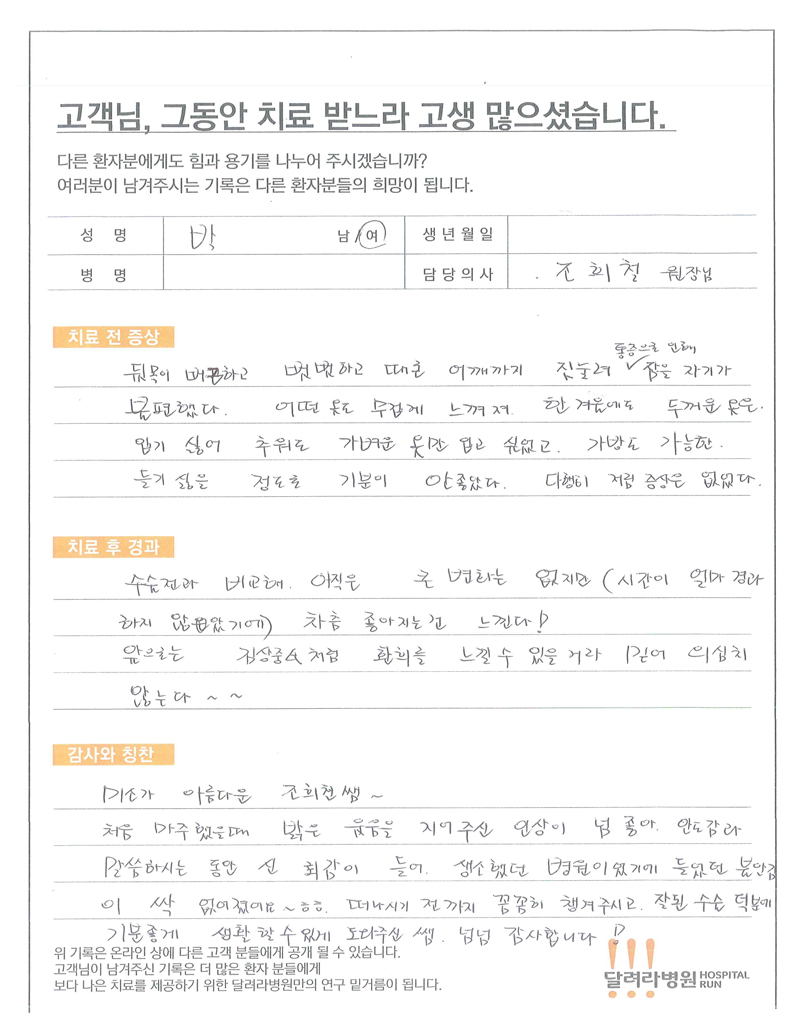 고객님, 그동안 치료 받느라 고생 많으셨습니다.
다른 환자분에게도 힘과 용기를 나누어 주시겠습니까?
여러분이 남겨주시는 기록은 다른 환자분들의 희망이 됩니다.
성 명 박 남/여 생년월일
병 명 담당의사 조희철 원장님
치료 전 증상
통증으로 인해
뒷목이 뻐근하고 뻣뻣하고 때론 어깨까지 짓눌려 잠을 자기가
불편했다. 어떤 옷도 무겁게 느껴져. 한 겨울에도 두꺼운 옷은.
입기 싫어 추워도 가벼운 옷만 입고 싶었고. 가방도 가능한.
들기 싫을 정도로 기분이 안좋았다. 다행히 저림 증상은 없었다.
치료 후 경과
수술전과 비교해. 아직은 큰 변화는 없지만 (시간이 얼마 경과
하지 않았기에) 차츰 좋아지는걸 느낀다!
앞으로는 처럼 환희를 느낄 수 있을거라 믿어 의심치
않는다 ~ ~
감사와 칭찬
미소가 아름다운 조희철쌤 ~
처음 마주했을때 밝은 웃음을 지어주신 인상이 넘 좋아. 안도감과
말씀하시는 동안 신뢰감이 들어. 생소했던 병원이였기에 들었던 불안감
이 싹 없어졌어요~ㅎㅎ. 떠나시기 전까지 꼼꼼히 챙겨주시고. 잘된 수술 덕분에
기분좋게 생활 할수있게 도와주신 쌤. 넘넘 감사합니다 !
위 기록은 온라인 상에 다른 고객 분들에게 공개 될 수 있습니다.
고객님이 남겨주신 기록은 더 많은 환자 분들에게
보다 나은 치료를 제공하기 위한 달려라병원만의 연구 밑거름이 됩니다.
달려라병원 HOSPITAL RUN